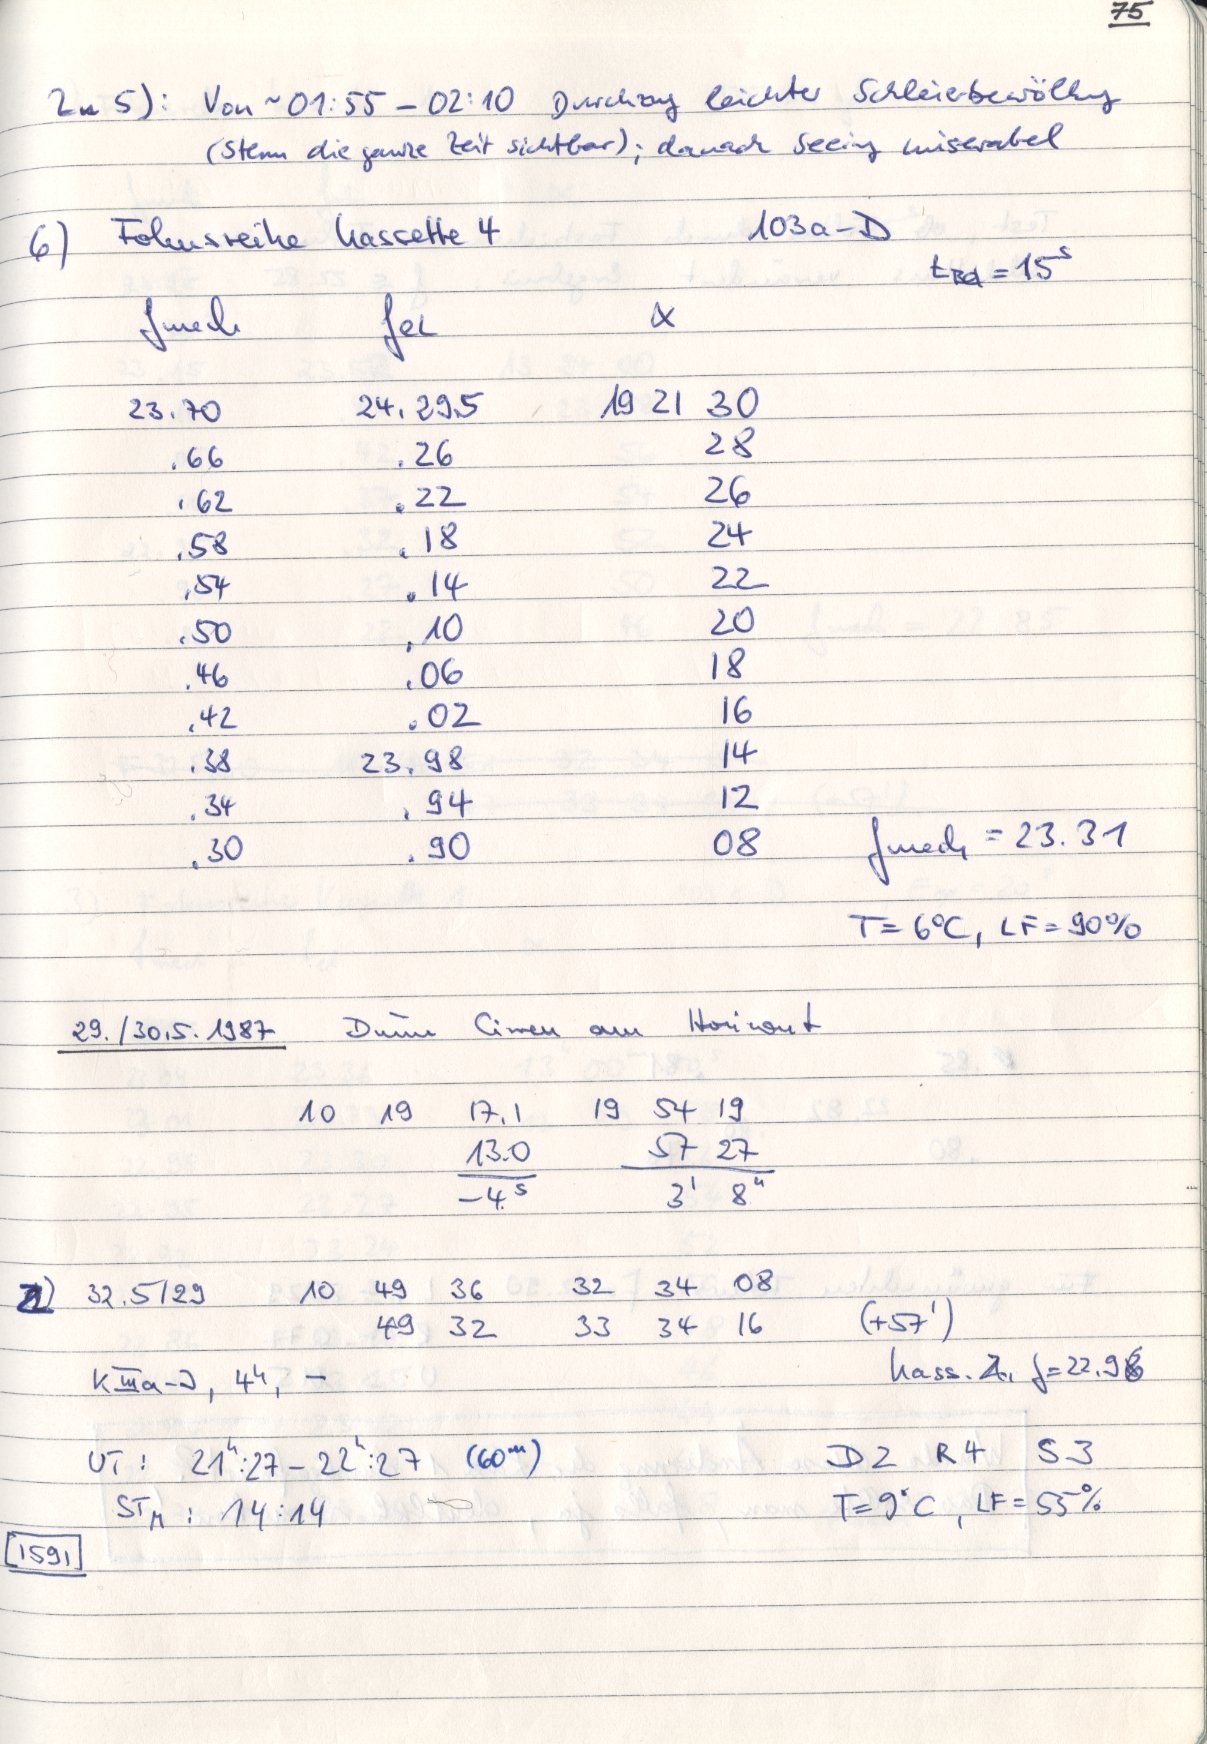 75
Zu 5): Von ~01:55 – 02:10 Durchzug leichter Schleierbewölkg
(Sterne die ganze Zeit sichtbar); danach Seeing miserabel
6) Fokusreihe Kassette 4 103a-D
tBel = 15s
fmech fel α
23.70 24.29.5 19 21 30
.66 .26 28
.62 .22 26
.58 .18 24
.54 .14 22
.50 .10 20
.46 .06 18
.42 .02 16
.38 23.98 14
.34 .94 12
.30 .90 08 fmech = 23.31
T = 6°C, LF = 90%
29./30.5.1987 Dünne Cirren am Horizont
10 19 17.1 19 54 19
13.0 57 27
-4.s 3' 8"
1) 32.5/29 10 49 36 32 34 08
49 32 33 34 16 (+57')
KIIIa-J, 4h, – Kass. 2, f=22.98
UT: 21h:27 – 22h:27 (60m) D2 R4 S3
STM: 14:14 T=9°C, LF=55%
[1591]